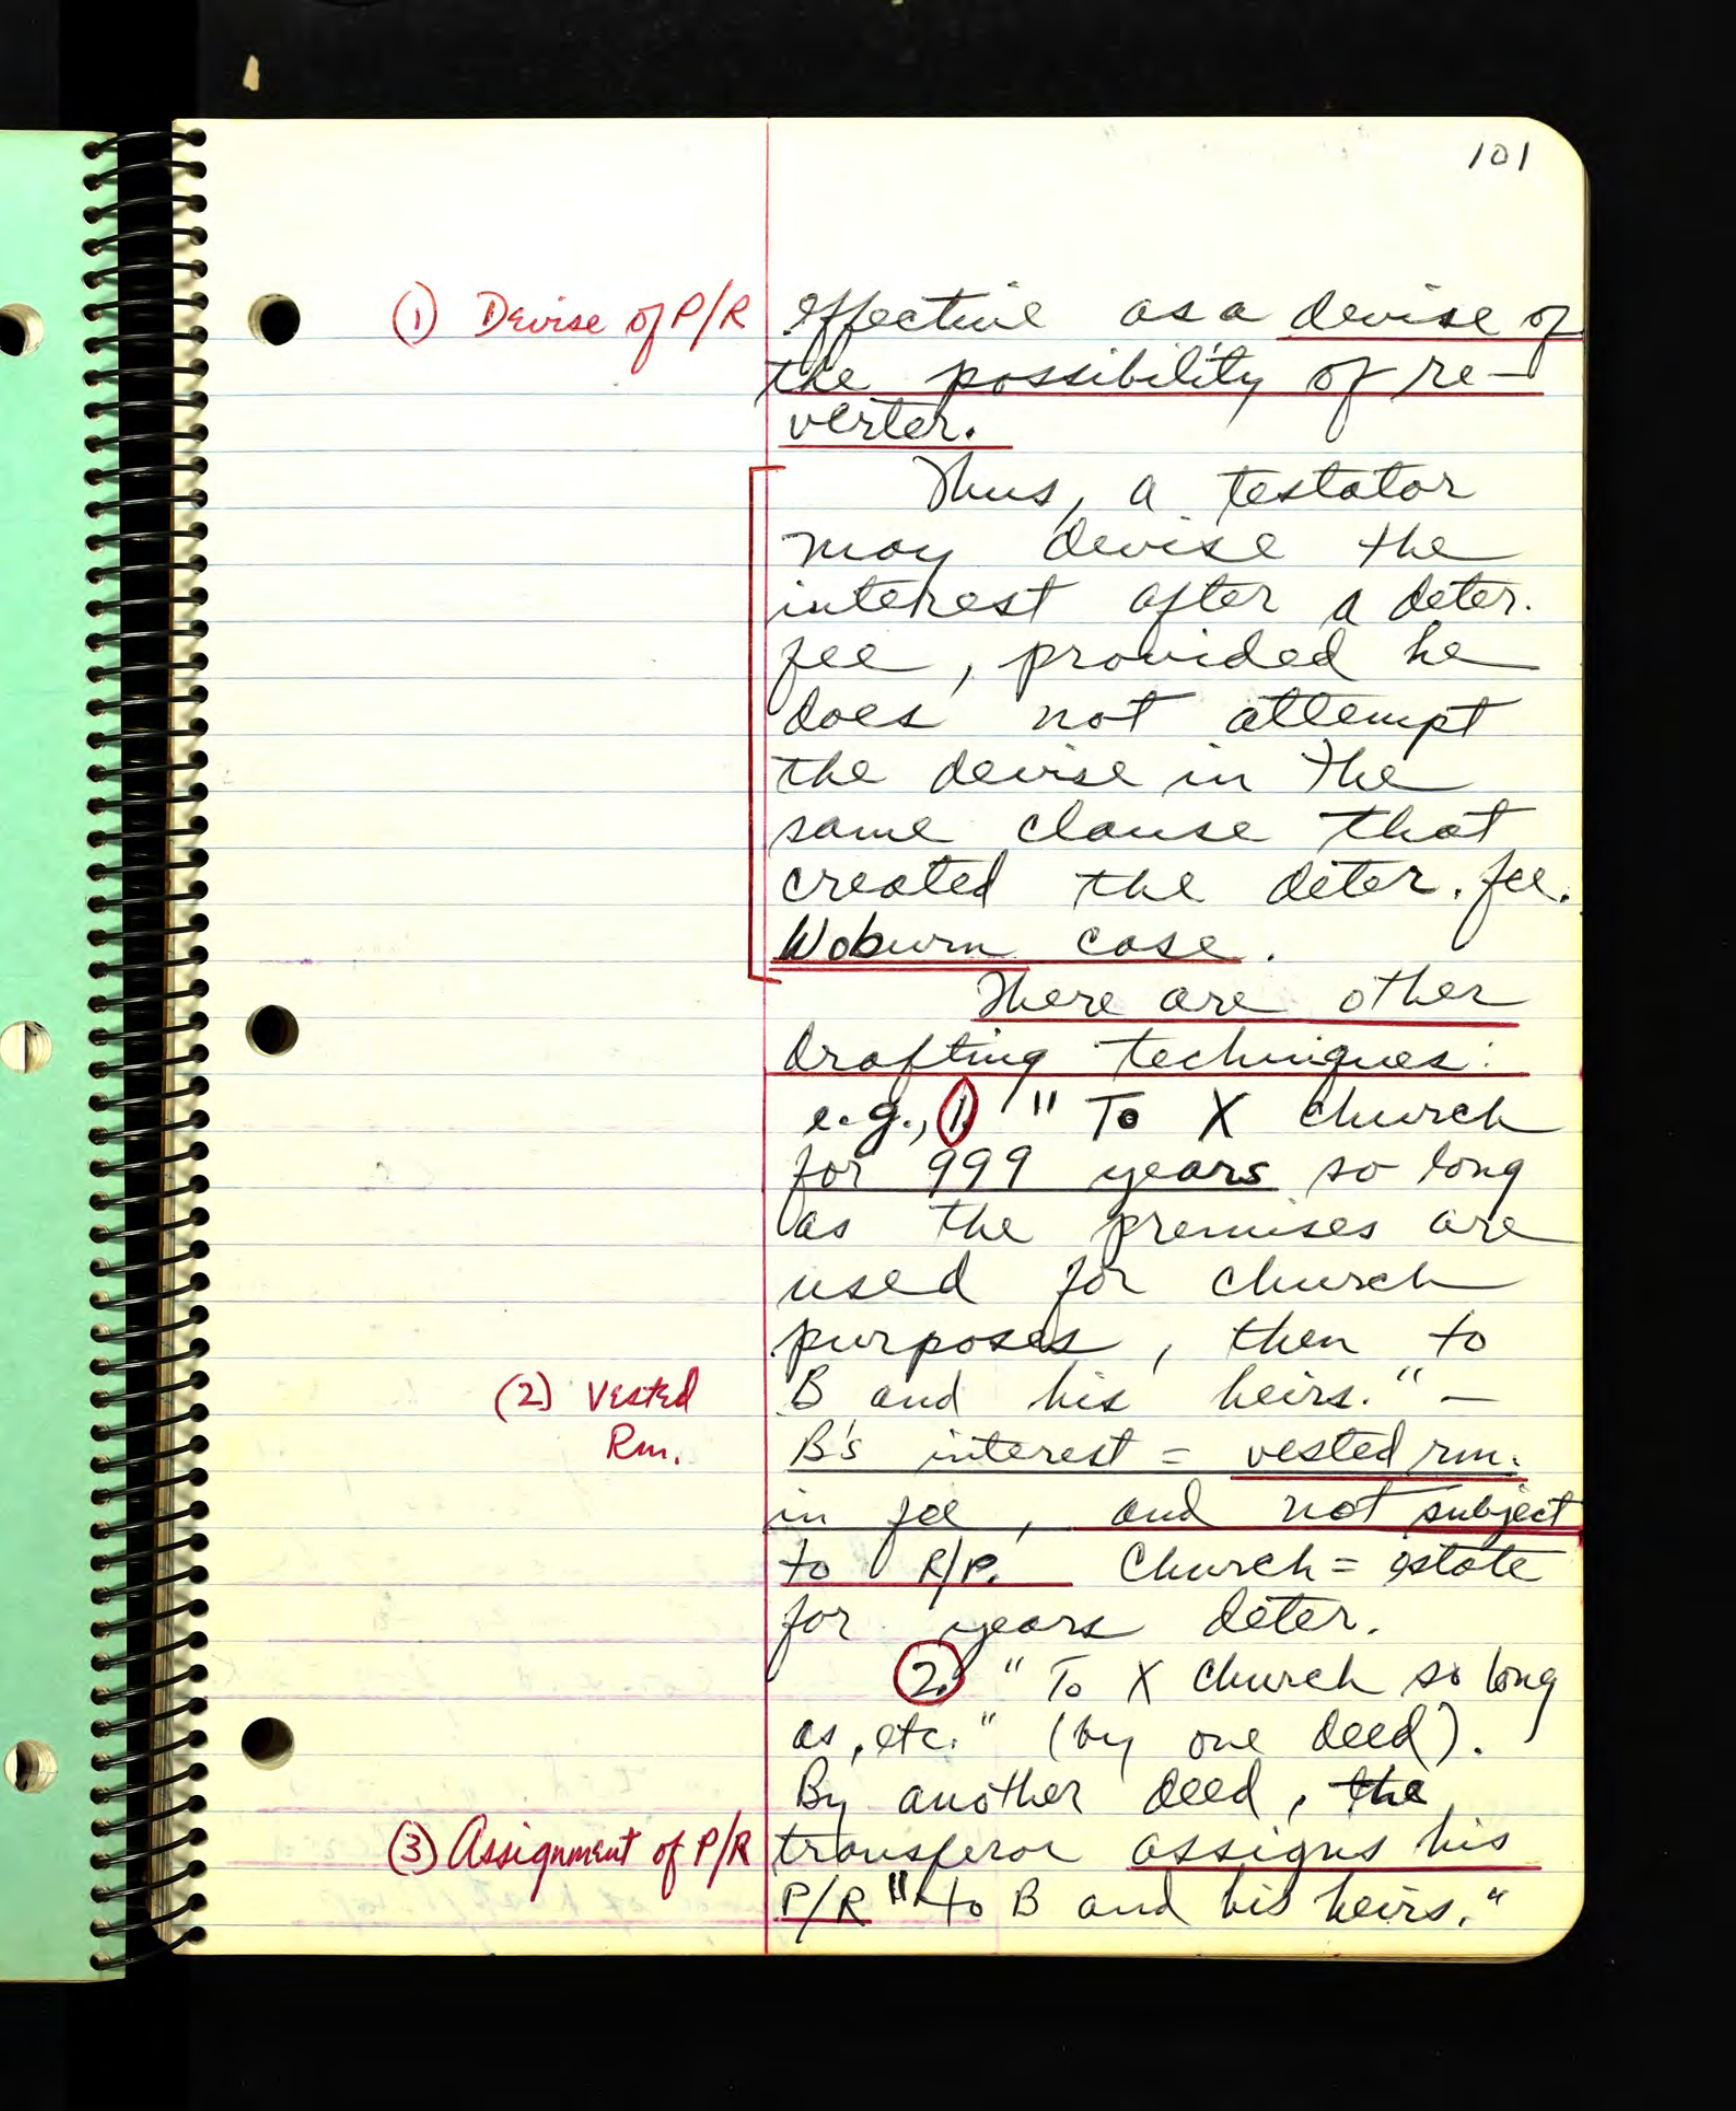 101
(1) Devise of P/R effective as a devise of
the possibility of re-
verter.
Thus, a testator
may devise the
interest after a deter.
fee, provided he
does not attempt
the devise in the
same clause that
created the deter. fee.
Woburn case.
There are other
drafting techniques:
e.g., 1. "To X church
for 999 years so long
as the premises are
used for church
purposes, then to
(2) Vested B and his heirs." —
Rm. B's interest = vested rm.
in fee, and not subject
to R/P. Church = estate
for years deter.
2. "To X church so long
as, etc." (by one deed).
By another deed, the
(3) Assignment of P/R transferor assigns his
P/R "to B and his heirs."